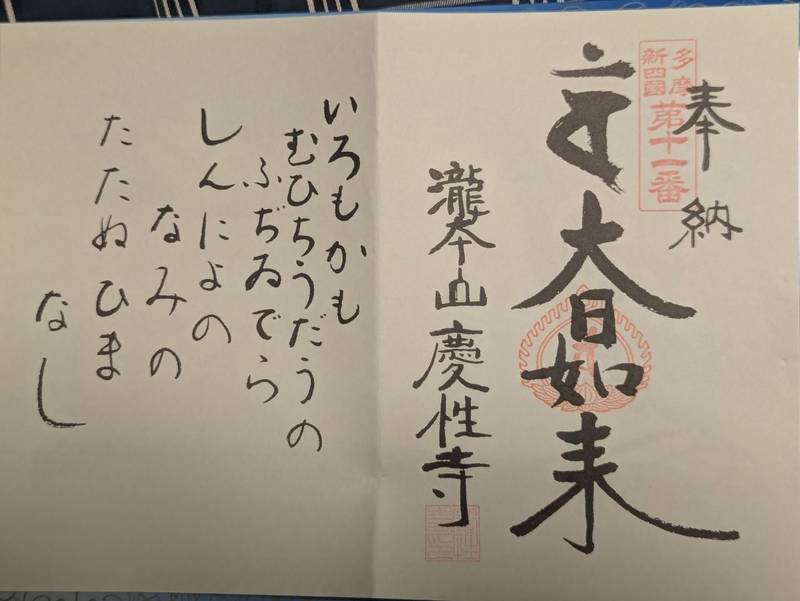 奉納
多摩
新四國
第十一番
大日如来
瀧本山慶性寺
いろもかも
むひちうだうの
ふぢゐでら
しんによの
なみの
たたぬひま
なし